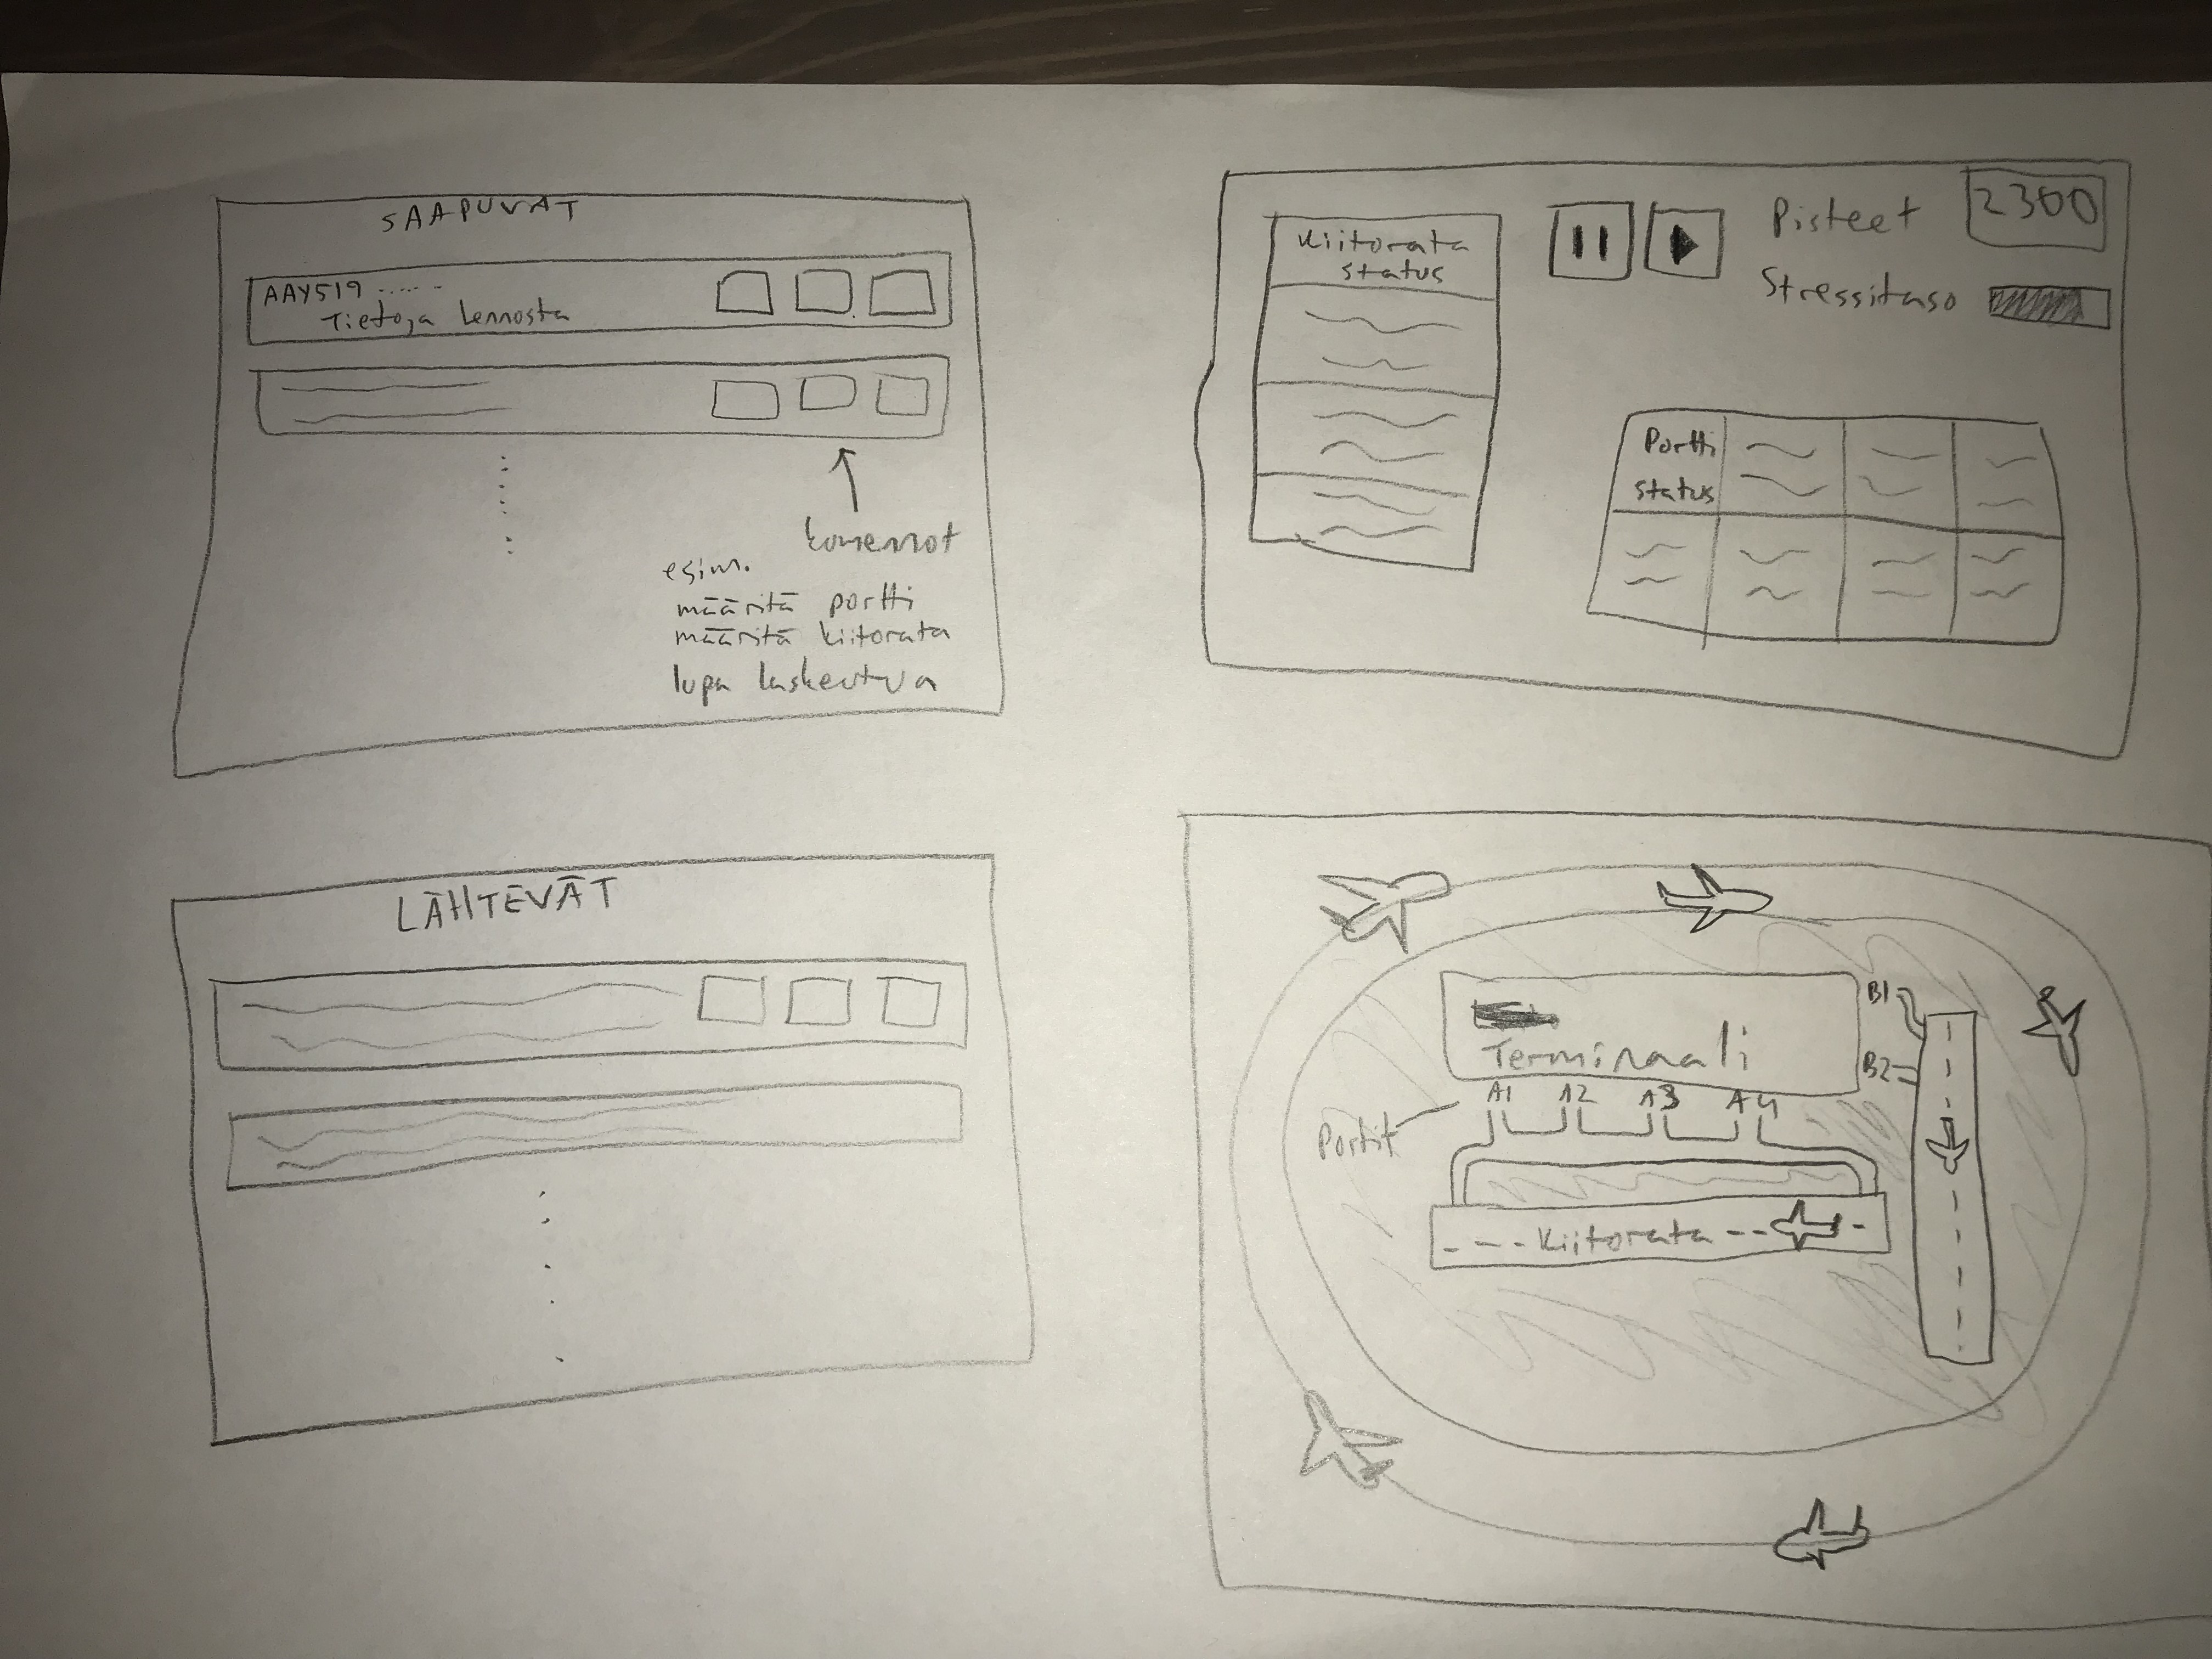 SAAPUVAT
AAY519 ......
Tietoja lennosta
komennot
esim.
määritä portti
määritä kiitorata
lupa laskeutua
Kiitorata
status
Pisteet 2300
Stressitaso
Portti
status
LÄHTEVÄT
Terminaali
B1
B2
A1 A2 A3 A4
Portit
Kiitorata